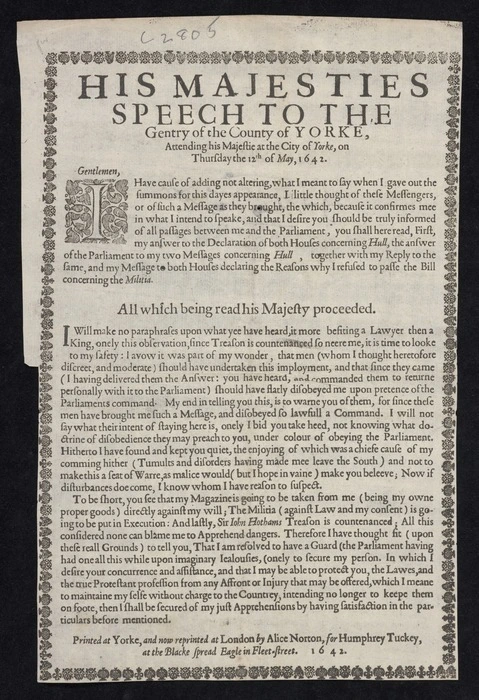 C 2805
HIS MAJESTIES
SPEECH TO THE
Gentry of the County of YORKE,
Attending his Majestie at the City of Yorke, on
Thursday the 12th of May, 1642.
Gentlemen,
I Have cause of adding not altering, what I meant to say when I gave out the
summons for this dayes appearance, I little thought of these Messengers,
or of such a Message as they brought, the which, because it confirmes mee
in what I intend to speake, and that I desire you should be truly informed
of all passages between me and the Parliament, you shall here read, First,
my answer to the Declaration of both Houses concerning Hull, the answer
of the Parliament to my two Messages concerning Hull, together with my Reply to the
same, and my Message to both Houses declaring the Reasons why I refused to passe the Bill
concerning the Militia.
All which being read his Majesty proceeded.
I Will make no paraphrases upon what yee have heard, it more befiting a Lawyer then a
King, onely this observation, since Treason is countenanced so neere me, it is time to looke
to my safety: I avow it was part of my wonder, that men (whom I thought heretofore
discreet, and moderate) should have undertaken this imployment, and that since they came
(I having delivered them the Answer: you have heard, and commanded them to returne
personally with it to the Parliament) should have flatly disobeyed me upon pretence of the
Parliaments command. My end in telling you this, is to warne you of them, for since these
men have brought me such a Message, and disobeyed so lawfull a Command. I will not
say what their intent of staying here is, onely I bid you take heed, not knowing what do-
ctrine of disobedience they may preach to you, under colour of obeying the Parliament.
Hitherto I have found and kept you quiet, the enjoying of which was a chiefe cause of my
comming hither (Tumults and disorders having made mee leave the South) and not to
make this a seat of Warre, as malice would (but I hope in vaine) make you beleeve; Now if
disturbances doe come, I know whom I have reason to suspect.
To be short, you see that my Magazine is going to be taken from me (being my owne
proper goods) directly against my will; The Militia (against Law and my consent) is go-
ing to be put in Execution: And lastly, Sir Iohn Hothams Treason is countenanced; All this
considered none can blame me to Apprehend dangers. Therefore I have thought fit (upon
these reall Grounds) to tell you, That I am resolved to have a Guard (the Parliament having
had one all this while upon imaginary Iealousies, (onely to secure my person. In which I
desire your concurrence and assistance, and that I may be able to protect you, the Lawes, and
the true Protestant profession from any Affront or Injury that may be offered, which I meane
to maintaine my selfe without charge to the Countrey, intending no longer to keepe them
on foote, then I shall be secured of my just Apprehensions by having satisfaction in the par-
ticulars before mentioned.
Printed at Yorke, and now reprinted at London by Alice Norton, for Humphrey Tuckey,
at the Blacke spread Eagle in Fleet-street. 1642.